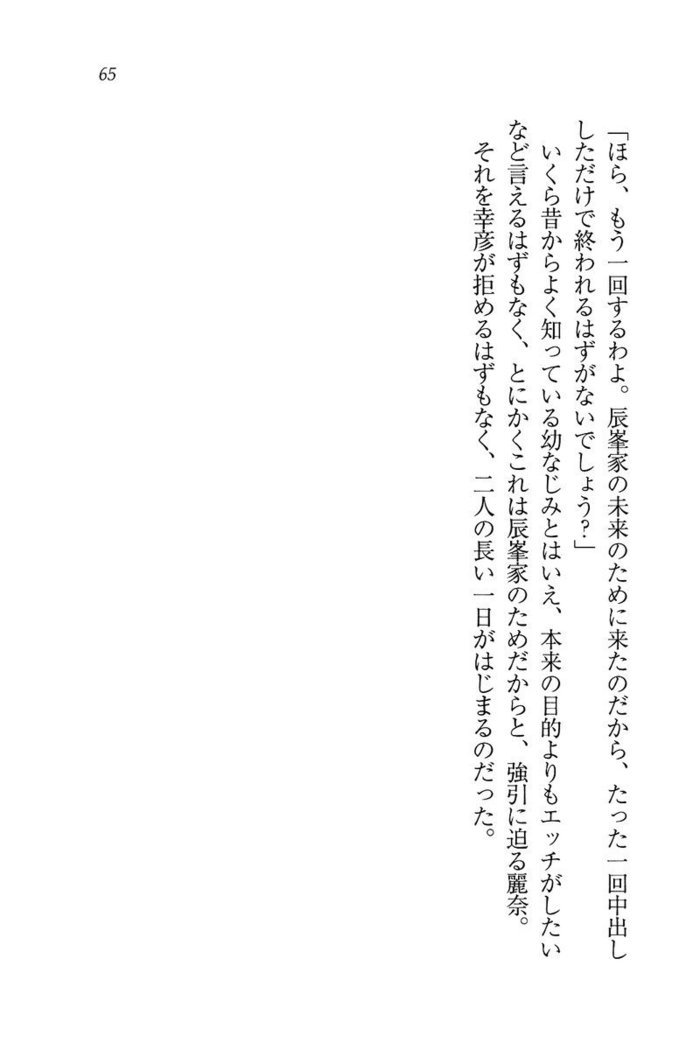 65
「ほら、もう一回するわよ。辰峯家の未来のために来たのだから、たった一回中出し
しただけで終われるはずがないでしょう?」
いくら昔からよく知っている幼なじみとはいえ、本来の目的よりもエッチがしたい
など言えるはずもなく、とにかくこれは辰峯家のためだからと、強引に迫る麗奈。
それを幸彦が拒めるはずもなく、二人の長い一日がはじまるのだった。